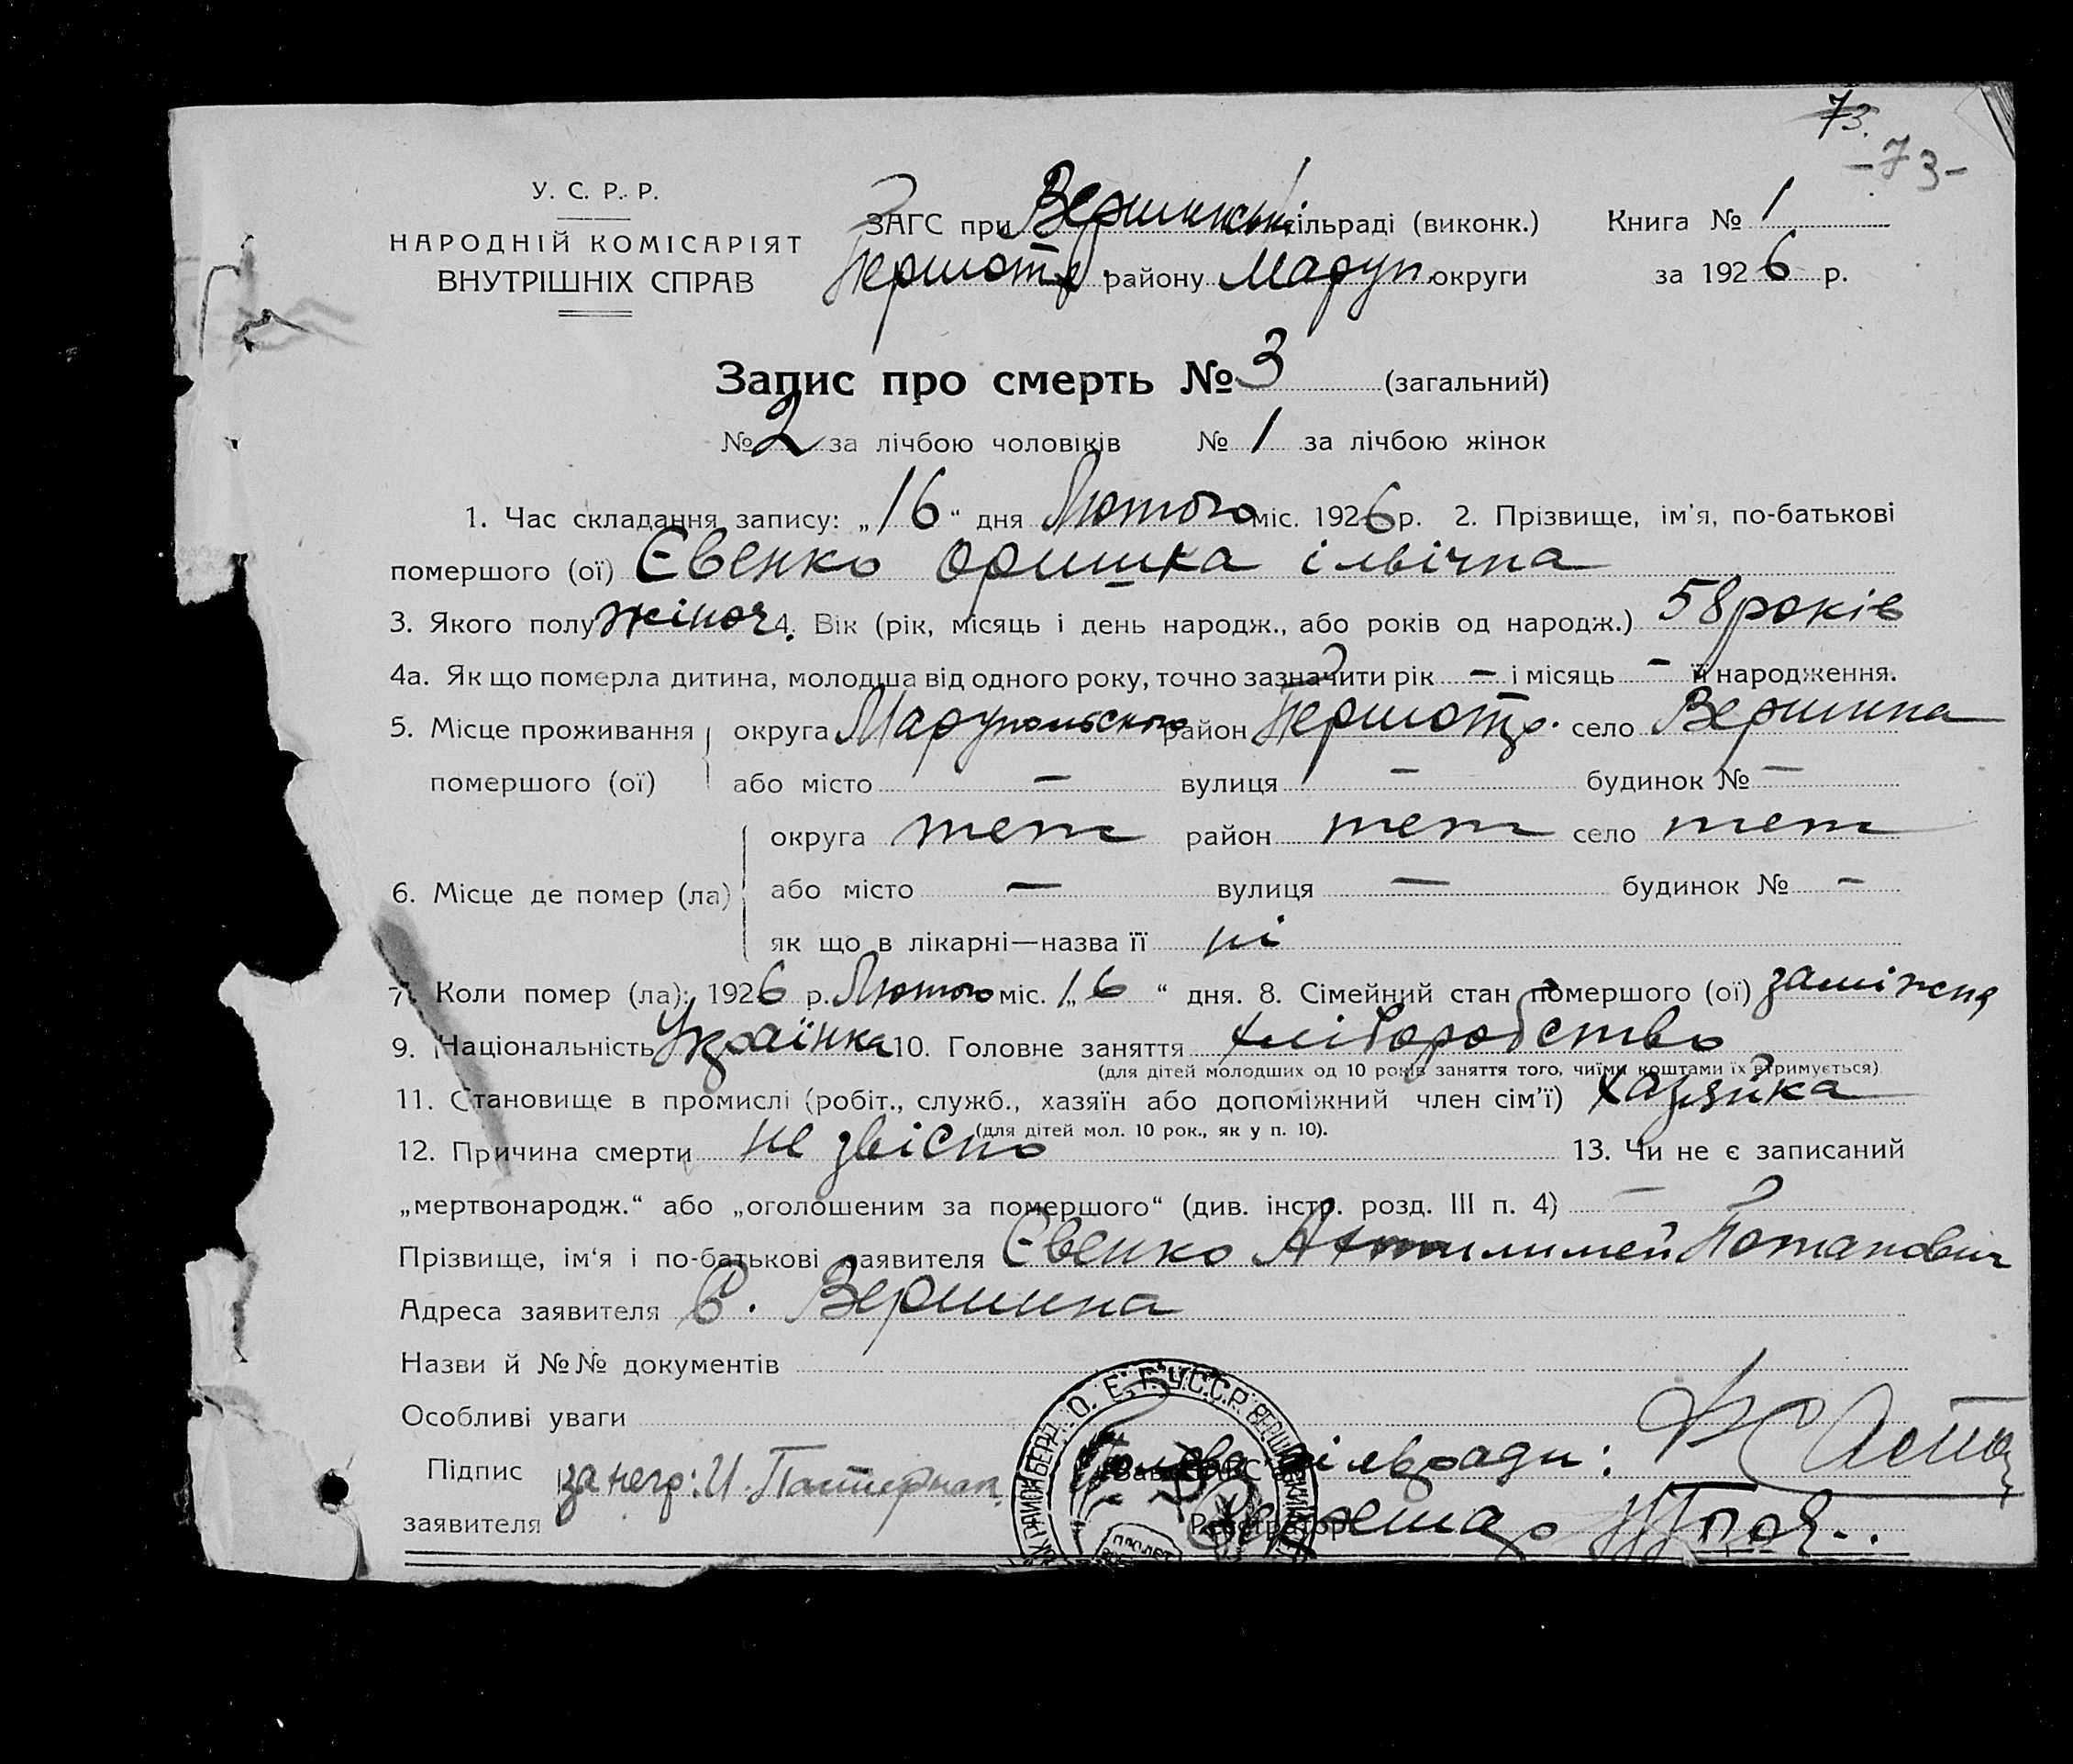 73.
-73-
У. С. Р. Р.
НАРОДНІЙ КОМІСАРІЯТ
ВНУТРІШНІХ СПРАВ
ЗАГС при Вершинській сільраді (виконк.) Книга № 1
Першотр. району Маруп. округи за 1926 р.
Запис про смерть № 3 (загальний)
№ 2 за лічбою чоловіків № 1 за лічбою жінок
1. Час складання запису: „16“ дня Лютого міс. 1926 р. 2. Прізвище, ім'я, по-батькові
помершого (ої) Євенко Оришка ілвічна
3. Якого полу жіноч. 4. Вік (рік, місяць і день народж., або років од народж.) 58 років
4а. Як що померла дитина, молодша від одного року, точно зазначити рік — і місяць — її народження.
5. Місце проживання округа Марупольского район Першотр. село Вершина
помершого (ої) або місто — вулиця — будинок № —
округа теж район теж село теж
6. Місце де помер (ла) або місто — вулиця — будинок № —
як що в лікарні—назва її ні
7. Коли помер (ла): 1926 р. Лютого міс. „16“ дня. 8. Сімейний стан помершого (ої) заміжня
9. Національність Українка 10. Головне заняття хліборобство
(для дітей молодших од 10 років заняття того, чиїми коштами їх втримується)
11. Становище в промислі (робіт., служб., хазяїн або допоміжний член сім'ї) хазяйка
(для дітей мол. 10 рок., як у п. 10).
12. Причина смерти не звісно 13. Чи не є записаний
„мертвонародж.“ або „оголошеним за помершого“ (див. інстр. розд. III п. 4) —
Прізвище, ім'я і по-батькові заявителя Євенко Потапович
Адреса заявителя С. Вершина
Назви й №№ документів
Особливі уваги
Підпис за негр: И.
заявителя
Голова сільради:
Зав. ЗАГС'ом
Реєстратор
О. Е. Г. У.С.С.Р.